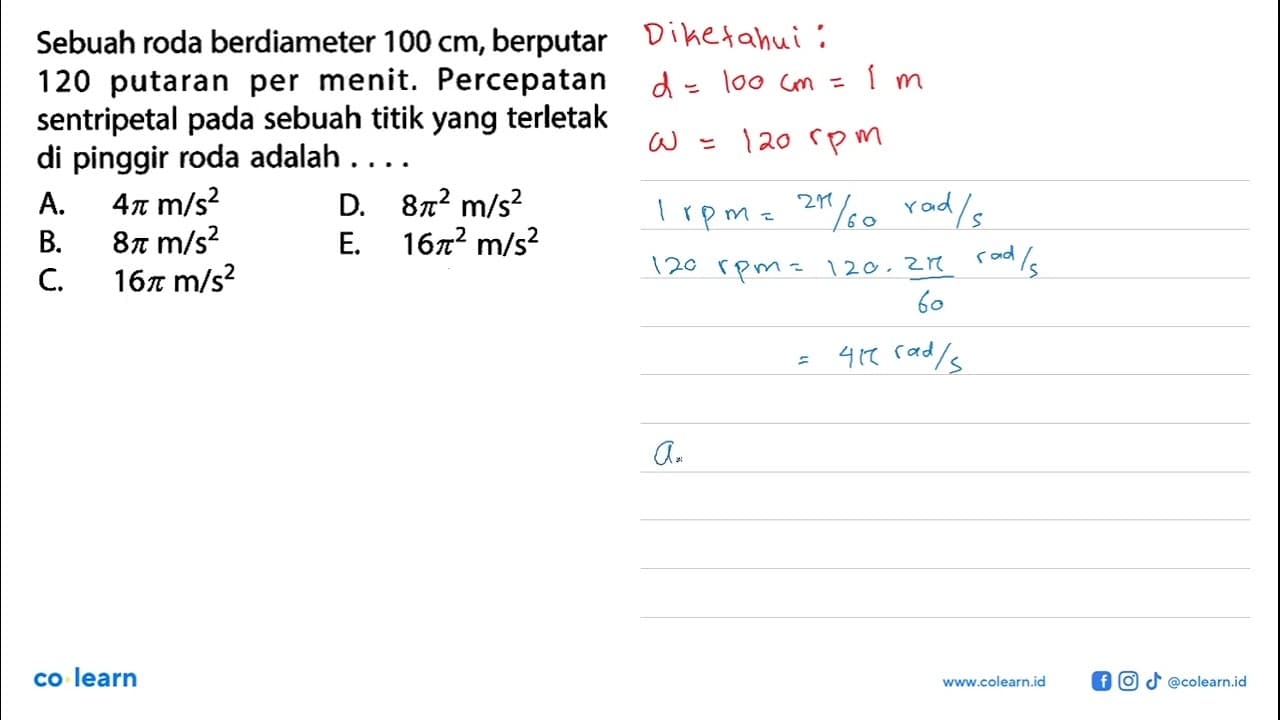 Sebuah roda berdiameter 100 cm, berputar
120 putaran per menit. Percepatan
sentripetal pada sebuah titik yang terletak
di pinggir roda adalah . . . .
A. 4π m/s² D. 8π² m/s²
B. 8π m/s² E. 16π² m/s²
C. 16π m/s²
Diketahui :
d = 100 cm = 1 m
ω = 120 rpm
1 rpm = 2π/60 rad/s
120 rpm = 120 . 2π/60 rad/s
= 4π rad/s
a
co learn
www.colearn.id
@colearn.id